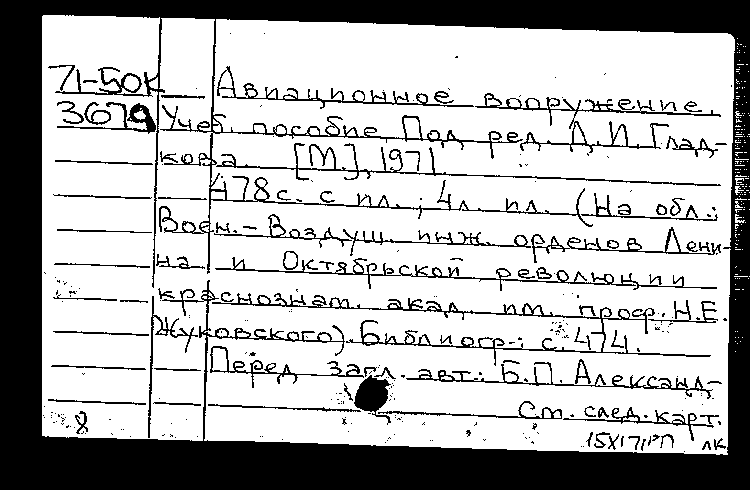 71-50К Авиационное вооружение.
3679 Учеб. пособие. Под ред. Д. И. Глад-
кова. [М.], 1971.
478с. с ил.; 4л. ил. (На обл.:
Воен.-Воздуш. инж. орденов Лени-
на и Октябрьской революции
краснознам. акад. им. проф. Н.Е.
Жуковского). Библиогр.: с. 474.
Перед загл. авт.: Б.П. Александ-
См. след. карт.
8 лк